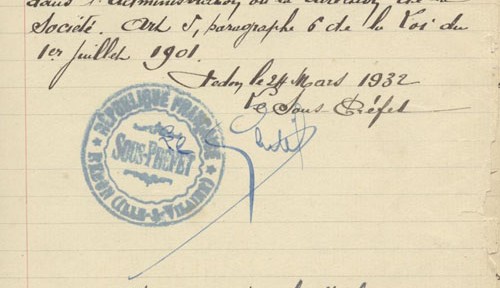 dans l'administration ou la direction de la
Société. Art 5, paragraphe 6 de la Loi du
1er juillet 1901.
Redon, le 24 Mars 1932
Le Sous Préfet
RÉPUBLIQUE FRANÇAISE
SOUS-PRÉFET
REDON (ILLE-&-VILAINE)